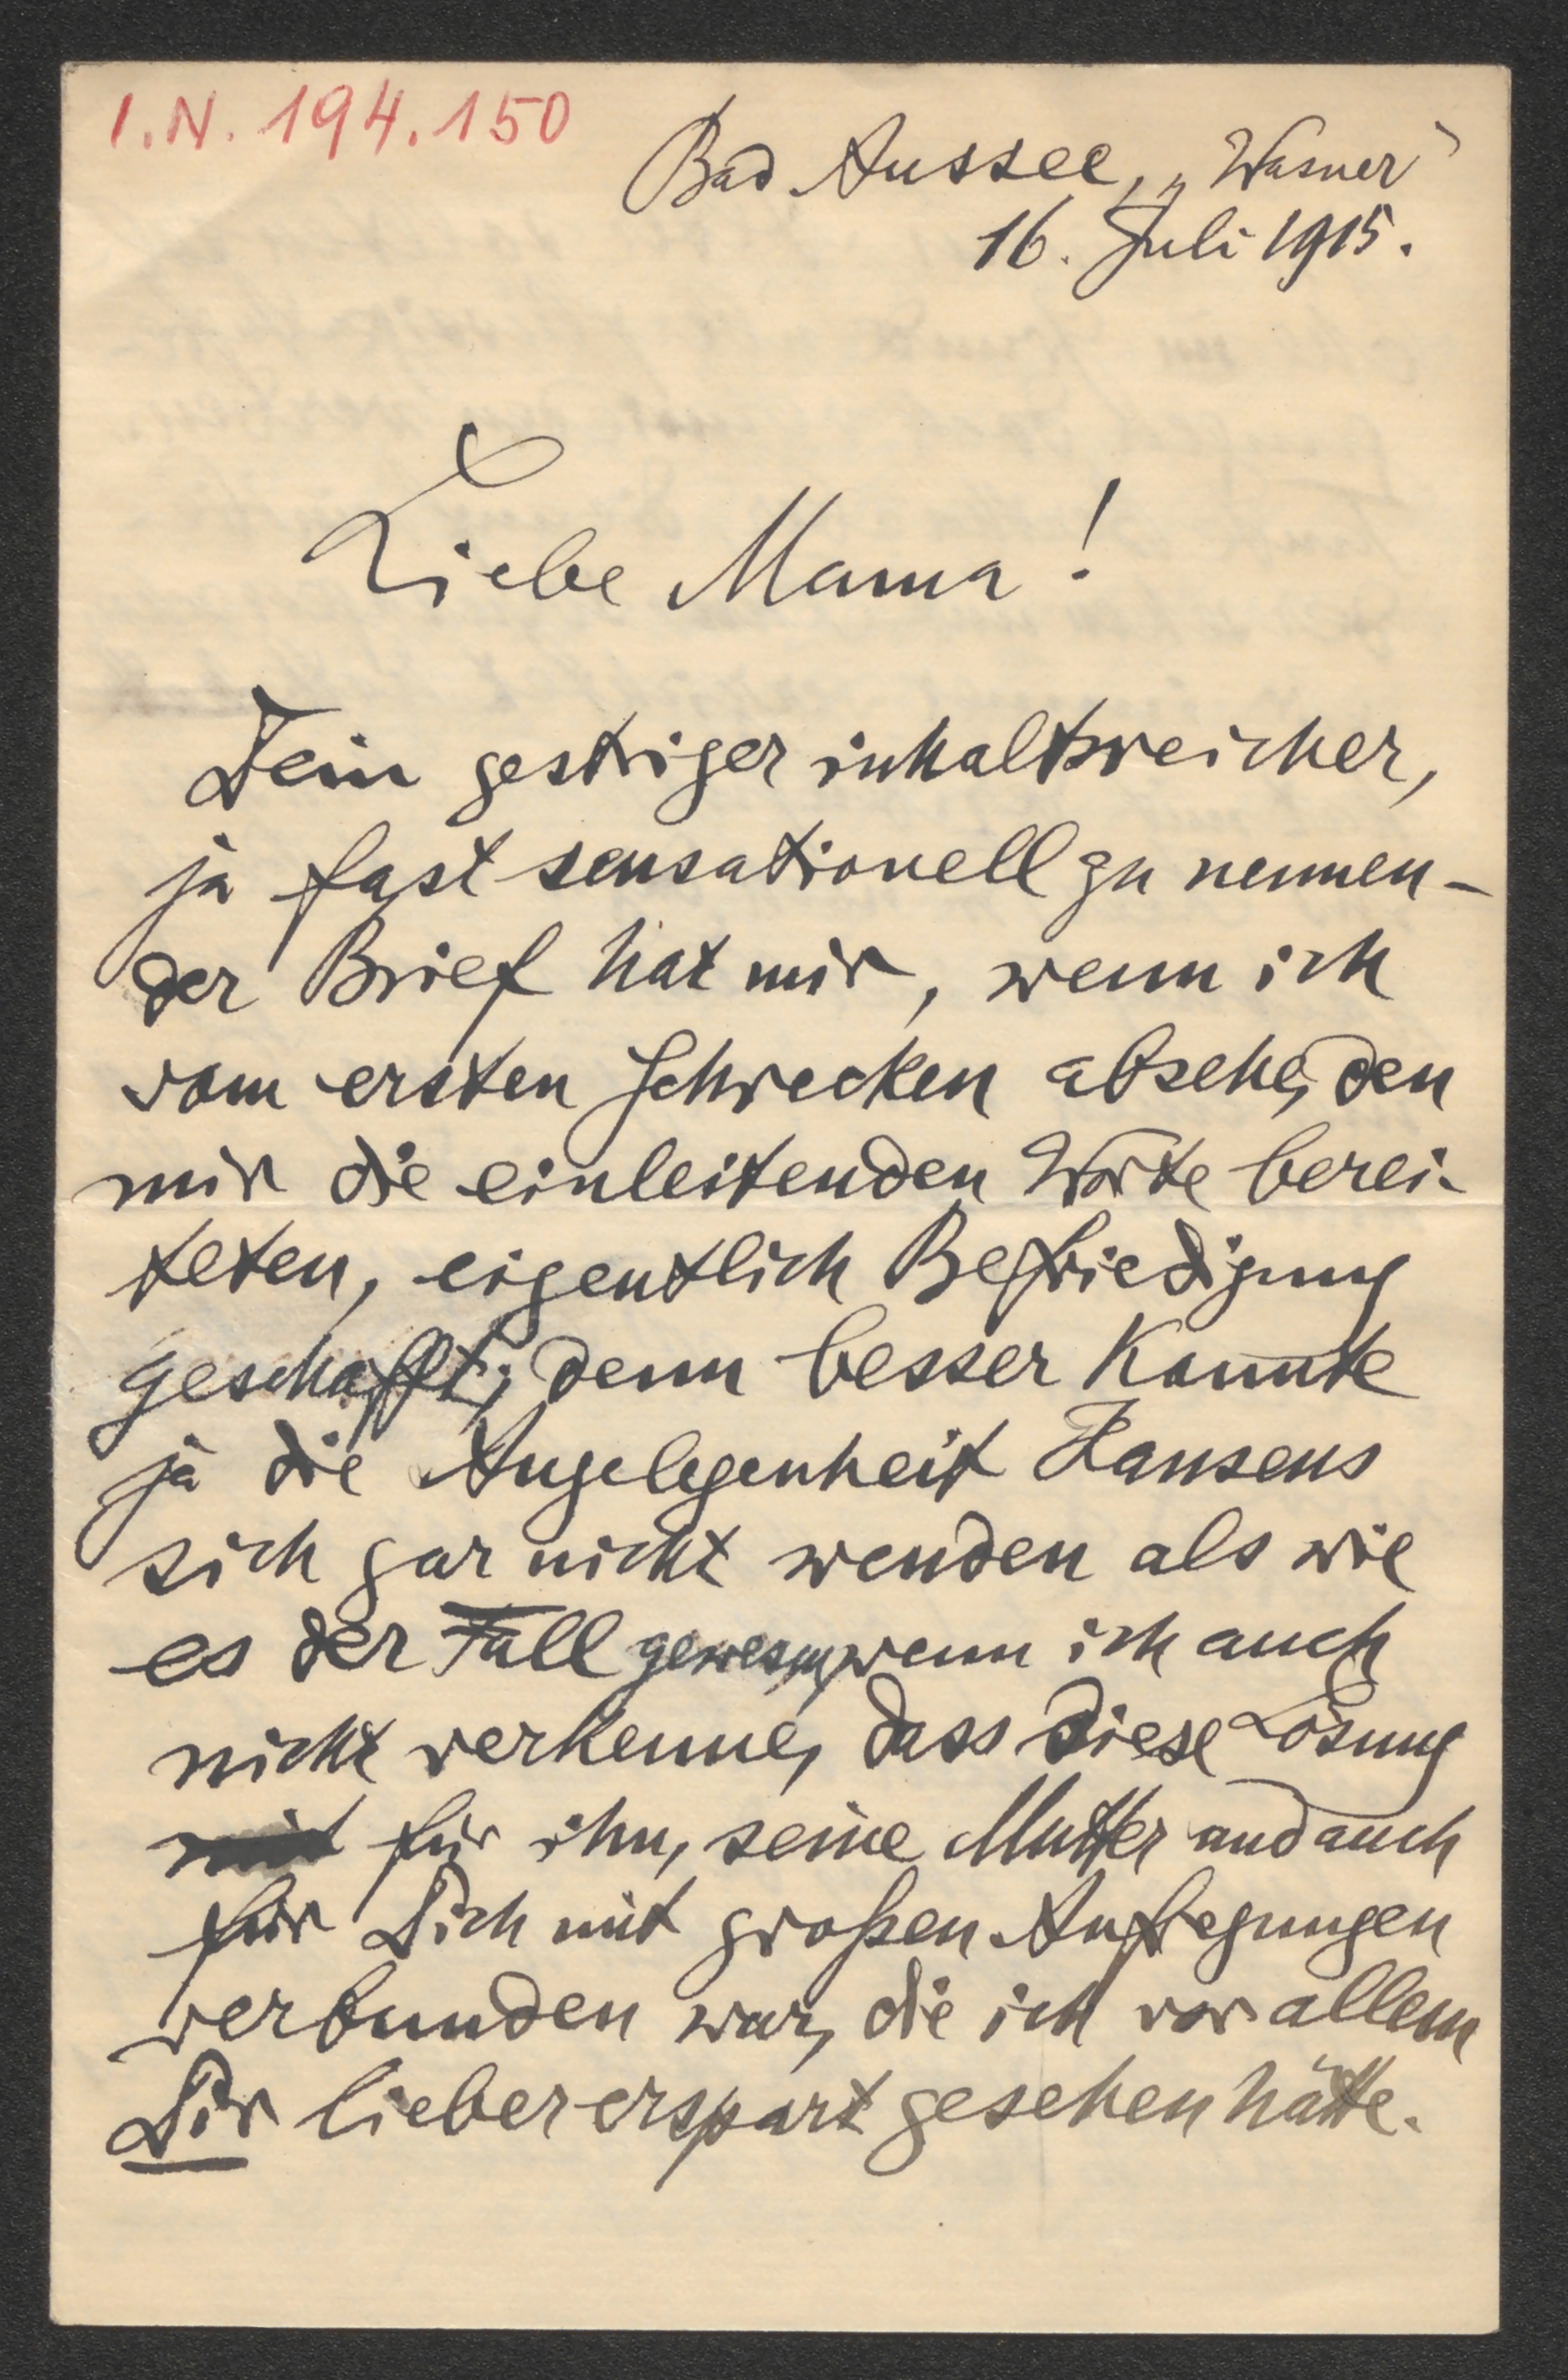 I.N. 194.150
Bad Aussee, „Wasner"
16. Juli 1915.
Liebe Mama!
Dein gestriger inhaltsreicher,
ja fast sensationell zu nennen-
der Brief hat mir, wenn ich
vom ersten Schrecken absehe, den
mir die einleitenden Worte berei-
teten, eigentlich Befriedigung
geschafft; denn besser konnte
ja die Angelegenheit Hansens
sich gar nicht wenden als wie
es der Fall gewesen, wenn ich auch
nicht verkenne, dass diese Lösung
mit für ihn, seine Mutter und auch
für Dich mit großen Aufregungen
verbunden war, die ich vor allem
Dir lieber erspart gesehen hätte.